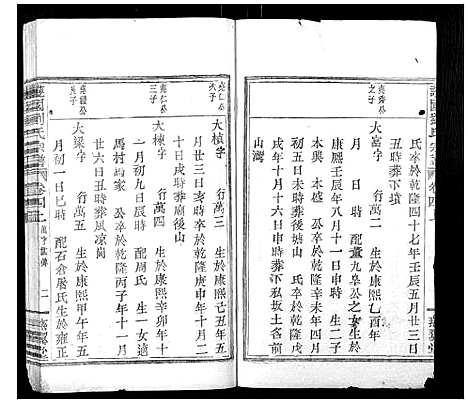 氏卒於康熙四十七年壬辰五月廿三日
丑時葬下墳
大富字 行萬二 生於康熙乙酉年
月 日 時 配董九皋公之女生於
康熙壬辰年八月十一日寅時 生二子
本興 本盛 公卒於乾隆辛未年四月
初二日辰時葬 山 氏卒於乾隆甲
戌年十月十六日子時葬下私坂土名倒
山灣
大楨字 行萬五 生於康熙己丑年五
月廿三日寅時卒於乾隆庚申年十月二
十日戌時葬廟後山
大棟字 行萬四 生於康熙辛卯年十
一月初九日辰時 配周氏 生一女適
馬村馬家 公卒於乾隆丙子年十一月
廿六日丑時葬風凉崗
大梁字 行萬三 生於康熙甲午年五
月初一日巳時 配石倉屠氏生於雍正